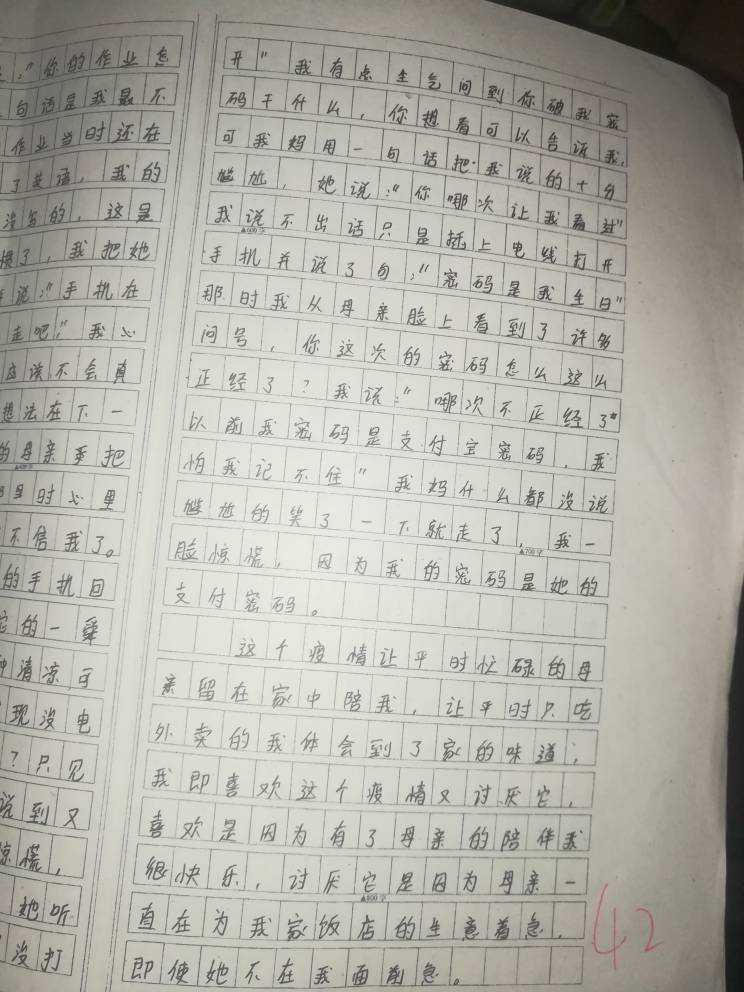 :"你的作业怎
句话是我最不
作业当时还在
了英语,我的
没写的,这是
換了,我把她
说:"手机在
走吧!"我心
应该不会真
想法在下一
的母亲手把
时心里
不信我了。
的手机回
它的一舜
清凉可
现没电
?只见
说到又
惊慌,
她听
没打
开"我有点生气问到你破我密
码干什么,你想看可以告诉我,
可我妈用一句话把我说的十分
尴尬,她说:"你哪次让我看过"
我说不出话只是插上电线打开
▲600字
手机并说了句:"密码是我生日"
那时我从母亲脸上看到了许多
问号,你这次的密码怎么这么
正经了?我说:"哪次不正经了"
以前我密码是支付宝密码,我
怕我记不住"我妈什么都没说
尴尬的笑了一下就走了,我一
▲700字
脸惊慌,因为我的密码是她的
支付密码。
这个疫情让平时忙碌的母
亲留在家中陪我,让平时只吃
外卖的我体会到了家的味道;
我即喜欢这个疫情又讨厌它,
喜欢是因为有了母亲的陪伴我
很快乐,讨厌它是因为母亲一
▲800字
直在为我家饭店的生意着急,
即使她不在我面前急。
42